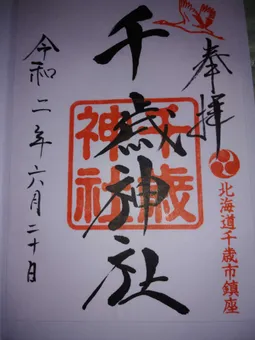 奉拝
北海道千歳市鎮座
千歳神社
千歳神社
令和二年六月二十日